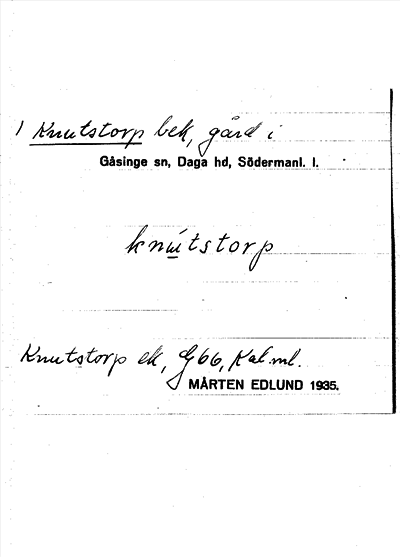 1 Knutstorp bek, gård i
Gåsinge sn, Daga hd, Södermanl. l.
knútstorp
Knutstorp ek, G66, Kat.ml.
MÅRTEN EDLUND 1935.